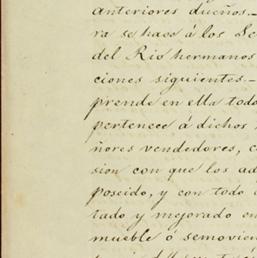 anteriores dueños._
ra se hace á los Se
del Rio hermanos
ciones siguientes._
prende en ella todo
pertenece á dichos
ñores vendedores, c
sion con que los ad
poseido, y con todo
tado y mejorado en
mueble ó semovien